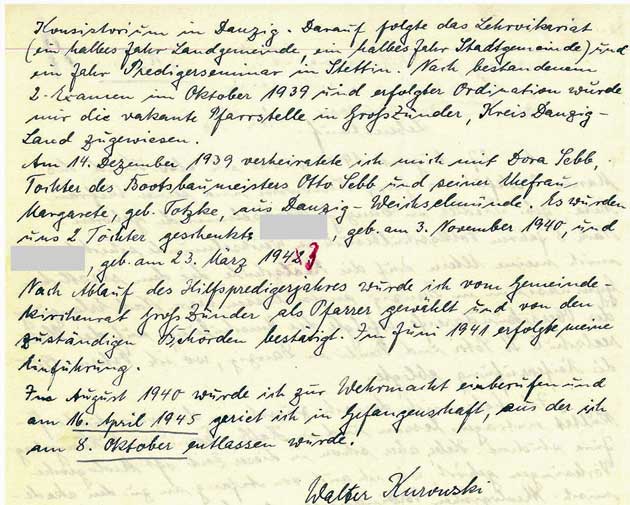 Konsistorium in Danzig. Darauf folgte das Lehrvikariat
(ein halbes Jahr Landgemeinde, ein halbes Jahr Stadtgemeinde) und
ein Jahr Predigerseminar in Stettin. Nach bestandenem
2. Examen im Oktober 1939 und erfolgter Ordination wurde
mir die vakante Pfarrstelle in Großzünder, Kreis Danzig-
Land zugewiesen.
Am 14. Dezember 1939 verheiratete ich mich mit Dora Sebb,
Tochter des Bootsbaumeisters Otto Sebb und seiner Ehefrau
Margarete, geb. Totzke, aus Danzig-Weichselmünde. Es wurden
uns 2 Töchter geschenkt, , geb. am 3. November 1940, und
, geb. am 23. März 1943
Nach Ablauf des Hilfspredigerjahres wurde ich vom Gemeinde-
kirchenrat Großzünder als Pfarrer gewählt und von den
zuständigen Behörden bestätigt. Im Juni 1941 erfolgte meine
Einführung.
Im August 1940 wurde ich zur Wehrmacht einberufen und
am 16. April 1945 geriet ich in Gefangenschaft, aus der ich
am 8. Oktober entlassen wurde.
Walter Kurowski